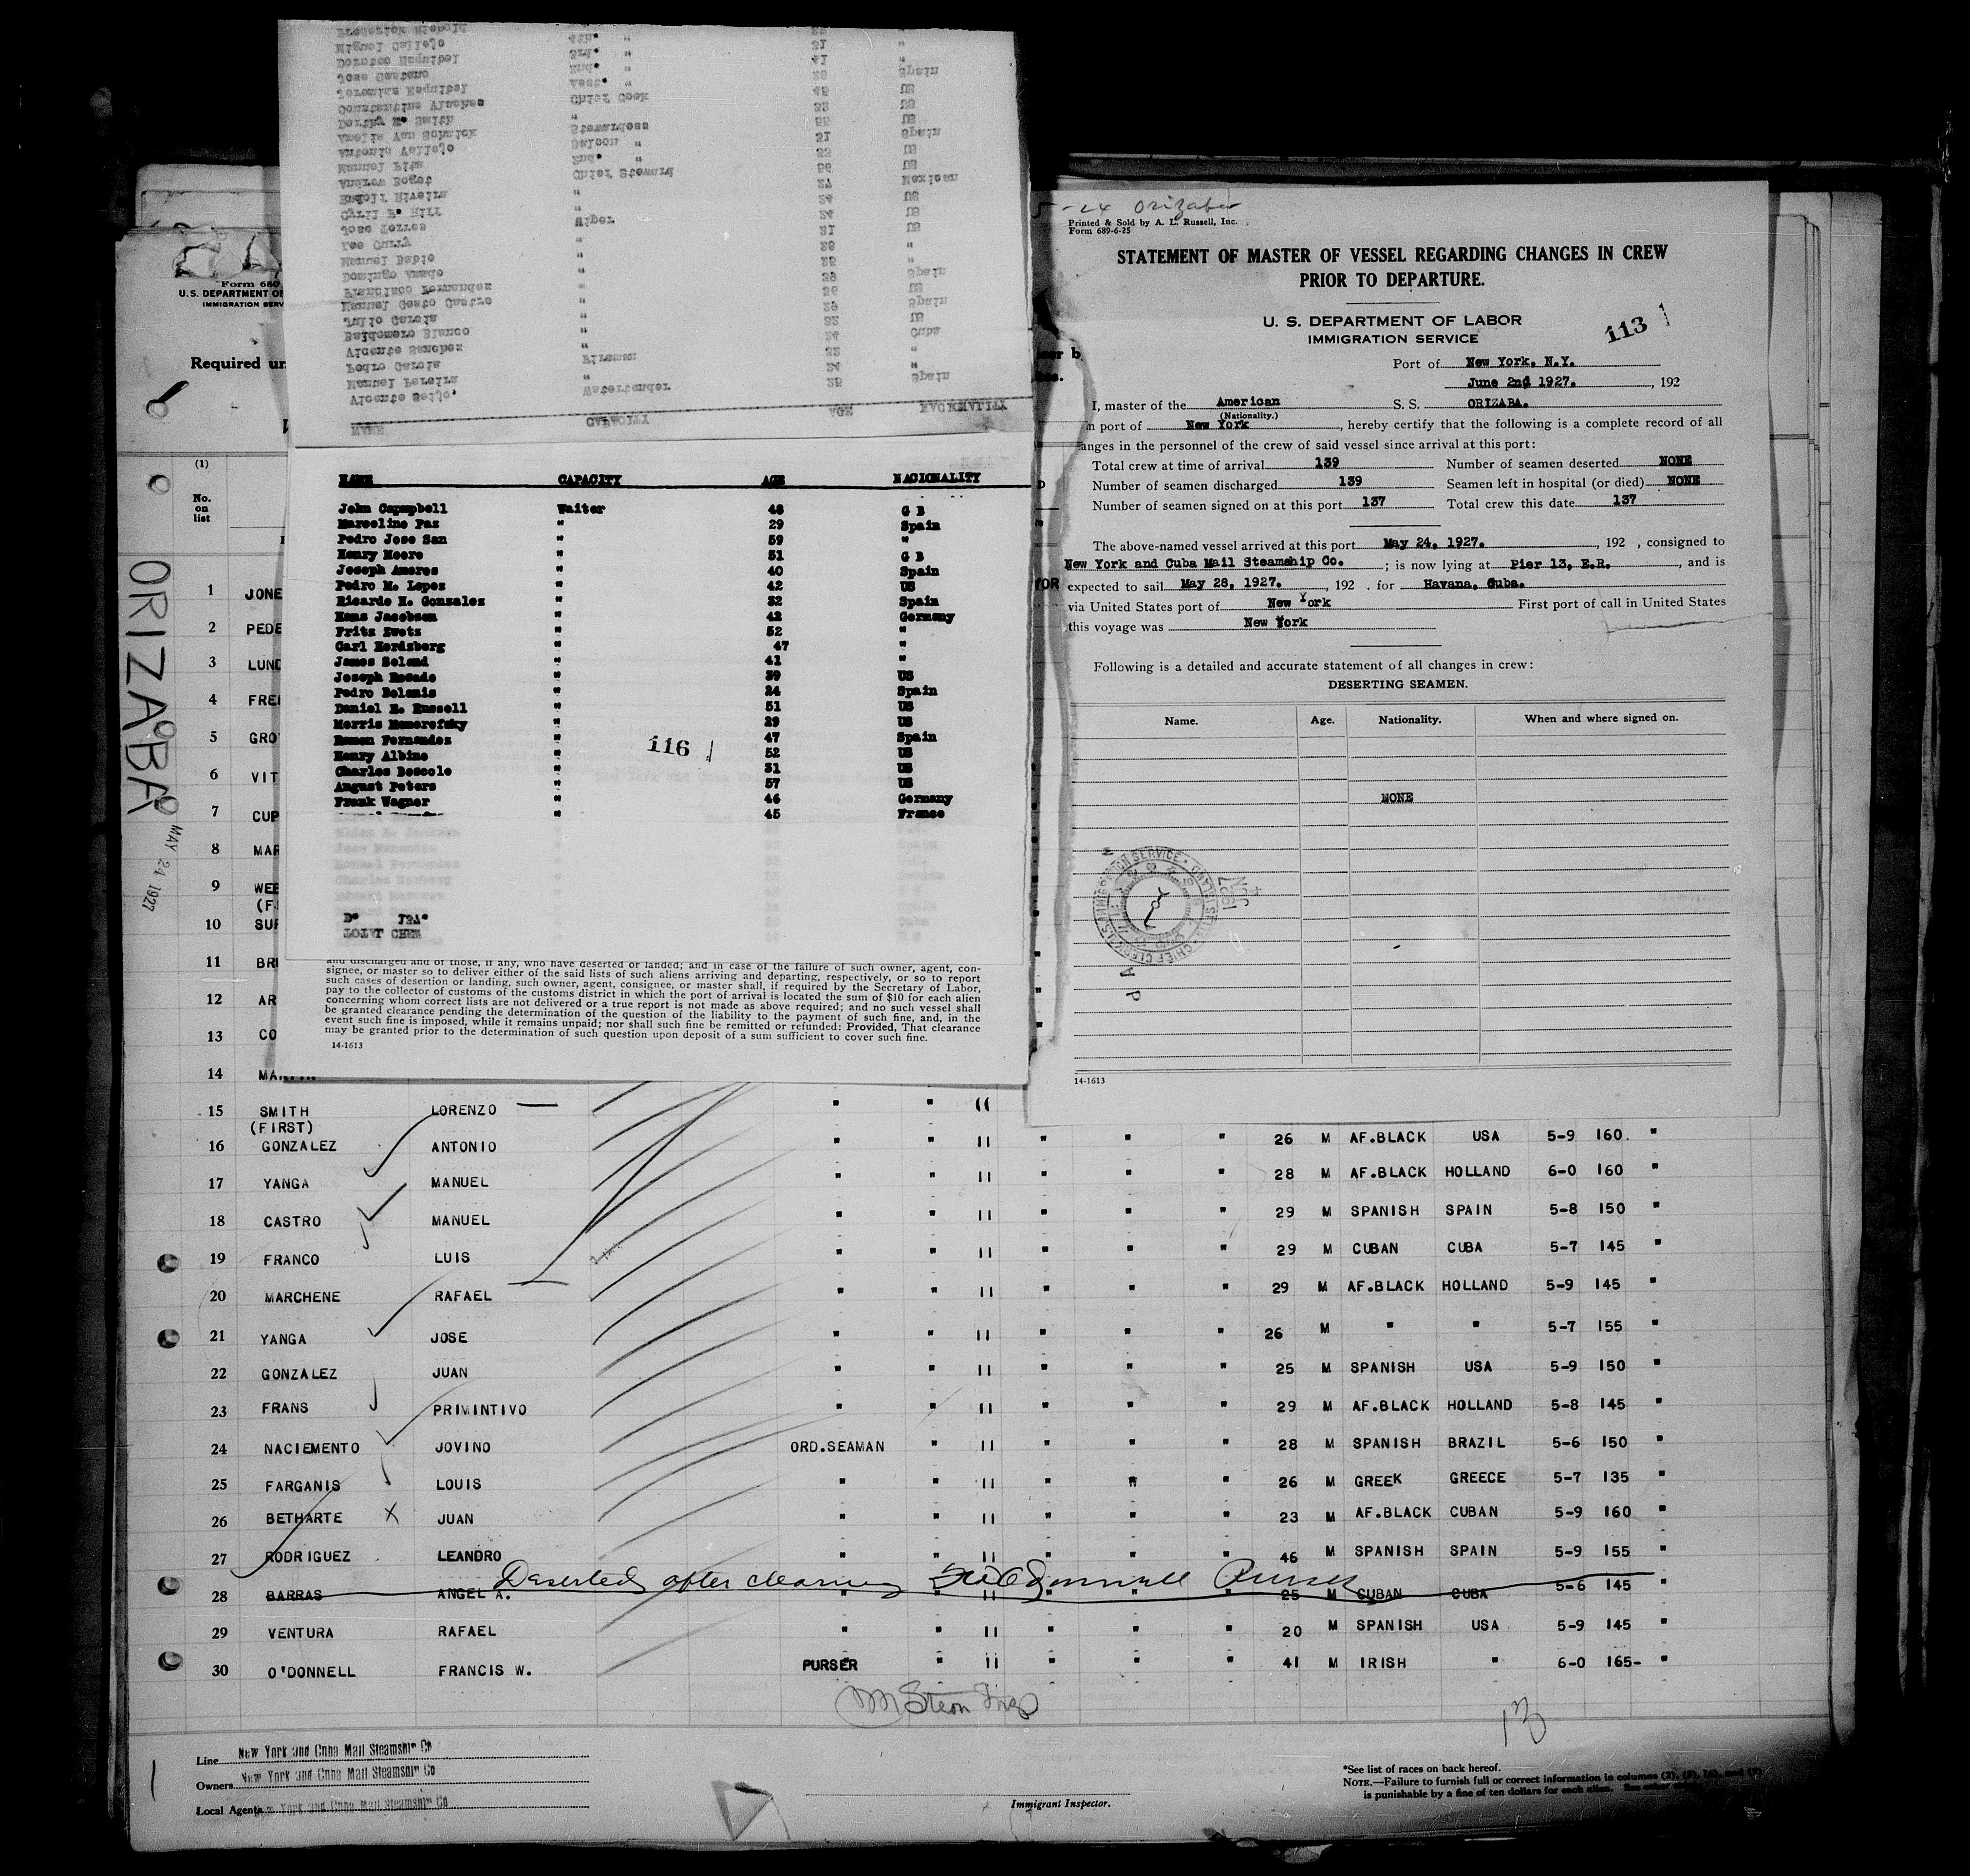 Frederick Siebold 4th. "
Miguel Callejo 3rd. " 31 "
Doroteo Esquibel 2nd. " 41 "
Jose Casteno Asst. " 28 Spain
Jeremias Esquibel Chief Cook 45 US
Constantine Vlachea " US
Dorthy M. Smith Stewardess US
Amelia Van Schaick Saloon " 31 Spain
Antonio Vallejo 2nd. " US
Manuel Pita Chief Steward US
Andrew Boget " 27 Mexican
Rudolf Riveira " 24 US
Cyril F. Hill Wiper 24 US
Jose Torres " 21 US
Lee Curry " 28 "
Manuel Babio " "
Domingo Amado " Spain
Francisco Fernandez " US
Manuel Gesto Castro " 29 Spain
Julio Garcia " US
Baldomero Blanco " 24 Cuba
Vicente Sanchez Fireman "
Pedro Garcia " 24 "
Manuel Pereira Watertender 25 Spain
Vicente Seijo.
NAME CAPACITY AGE NACIONALITY
NAME CAPACITY AGE NACIONALITY
John Capmpbell Waiter 48 G B
Marcelino Paz " 29 Spain
Pedro Jose San " 59 "
Henry Moore " 51 G B
Joseph Amoros " 40 Spain
Pedro M. Lopez " 42 US
Ricardo H. Gonzalez " 32 Spain
Hans Jacobsen " 42 Germany
Fritz Zwetz " 52 "
Carl Herdzberg " 47 "
James Soland " 41 "
Joseph Rosado " 39 US
Pedro Bolanis " 24 Spain
Daniel E. Russell " 51 US
Morris Memorofsky " 29 US
Ramon Fernandez " 47 Spain
Henry Albino " 52 US
Charles Boscolo " 31 US
August Peters " 57 US
Frank Wagner " 46 Germany
" 45 France
116
TOTAL CREW
and discharged and of those, if any, who have deserted or landed; and in case of the failure of such owner, agent, con-
signee, or master so to deliver either of the said lists of such aliens arriving and departing, respectively, or so to report
such cases of desertion or landing, such owner, agent, consignee, or master shall, if required by the Secretary of Labor,
pay to the collector of customs of the customs district in which the port of arrival is located the sum of $10 for each alien
concerning whom correct lists are not delivered or a true report is not made as above required; and no such vessel shall
be granted clearance pending the determination of the question of the liability to the payment of such fine, and, in the
event such fine is imposed, while it remains unpaid; nor shall such fine be remitted or refunded: Provided, That clearance
may be granted prior to the determination of such question upon deposit of a sum sufficient to cover such fine.
14-1613
5-24 Orizaba
Printed & Sold by A. L. Russell, Inc.
Form 689-6-25
STATEMENT OF MASTER OF VESSEL REGARDING CHANGES IN CREW
PRIOR TO DEPARTURE.
U. S. DEPARTMENT OF LABOR
IMMIGRATION SERVICE
113
Port of New York, N.Y.
June 2nd 1927. , 192
I, master of the American S. S. ORIZABA.
(Nationality.)
n port of New York , hereby certify that the following is a complete record of all
anges in the personnel of the crew of said vessel since arrival at this port:
Total crew at time of arrival 139 Number of seamen deserted NONE
Number of seamen discharged 139 Seamen left in hospital (or died) NONE
Number of seamen signed on at this port 137 Total crew this date 137
The above-named vessel arrived at this port May 24, 1927. , 192 , consigned to
New York and Cuba Mail Steamship Co. ; is now lying at Pier 13, E.R. , and is
expected to sail May 28, 1927. , 192 . for Havana, Cuba.
via United States port of New York First port of call in United States
this voyage was New York
Following is a detailed and accurate statement of all changes in crew:
DESERTING SEAMEN.
Name. Age. Nationality. When and where signed on.
NONE
JUN 4 1927
14-1613
Form 680
U. S. DEPARTMENT OF
IMMIGRATION SERV
Required un
(1)
No. on list
ORIZABA
MAY 24 1927
1 JONE
2 PEDE
3 LUND
4 FREI
5 GRO
6 VIT
7 CUP
8 MAR
9 WEE
(F
10 SUF
11 BRI
12 AR
13 CO
14 MARTIN
15 SMITH LORENZO " " 11
(FIRST)
16 GONZALEZ ANTONIO " " 11 " " " 26 M AF.BLACK USA 5-9 160. "
17 YANGA MANUEL " " 11 " " " 28 M AF.BLACK HOLLAND 6-0 160 "
18 CASTRO MANUEL " " 11 " " " 29 M SPANISH SPAIN 5-8 150 "
19 FRANCO LUIS " " 11 " " " 29 M CUBAN CUBA 5-7 145 "
20 MARCHENE RAFAEL " " 11 " " " 29 M AF.BLACK HOLLAND 5-9 145 "
21 YANGA JOSE " " 11 " " " 26 M " " 5-7 155 "
22 GONZALEZ JUAN " " 11 " " " 25 M SPANISH USA 5-9 150 "
23 FRANS PRIMINTIVO " " 11 " " " 29 M AF.BLACK HOLLAND 5-8 145 "
24 NACIEMENTO JOVINO ORD.SEAMAN " 11 " " " 28 M SPANISH BRAZIL 5-6 150 "
25 FARGANIS LOUIS " " 11 " " " 26 M GREEK GREECE 5-7 135 "
26 BETHARTE X JUAN " " 11 " " " 23 M AF.BLACK CUBAN 5-9 160 "
27 RODRIGUEZ LEANDRO " " 11 " " " 46 M SPANISH SPAIN 5-9 155 "
Deserted after clearing F W O'Donnell Purser
28 BARRAS ANGEL A. " " 11 " " " 25 M CUBAN CUBA 5-6 145 "
29 VENTURA RAFAEL " " 11 " " " 20 M SPANISH USA 5-9 145 "
30 O'DONNELL FRANCIS W. PURSER " 11 " " " 41 M IRISH " 6-0 165- "
M Stern Insp
13
Line New York and Cuba Mail Steamship Co
Owners New York and Cuba Mail Steamship Co
Local Agents New York and Cuba Mail Steamship Co
Immigrant Inspector.
*See list of races on back hereof.
NOTE.—Failure to furnish full or correct information in columns (2), (5), (6), and (7)
is punishable by a fine of ten dollars for each alien.